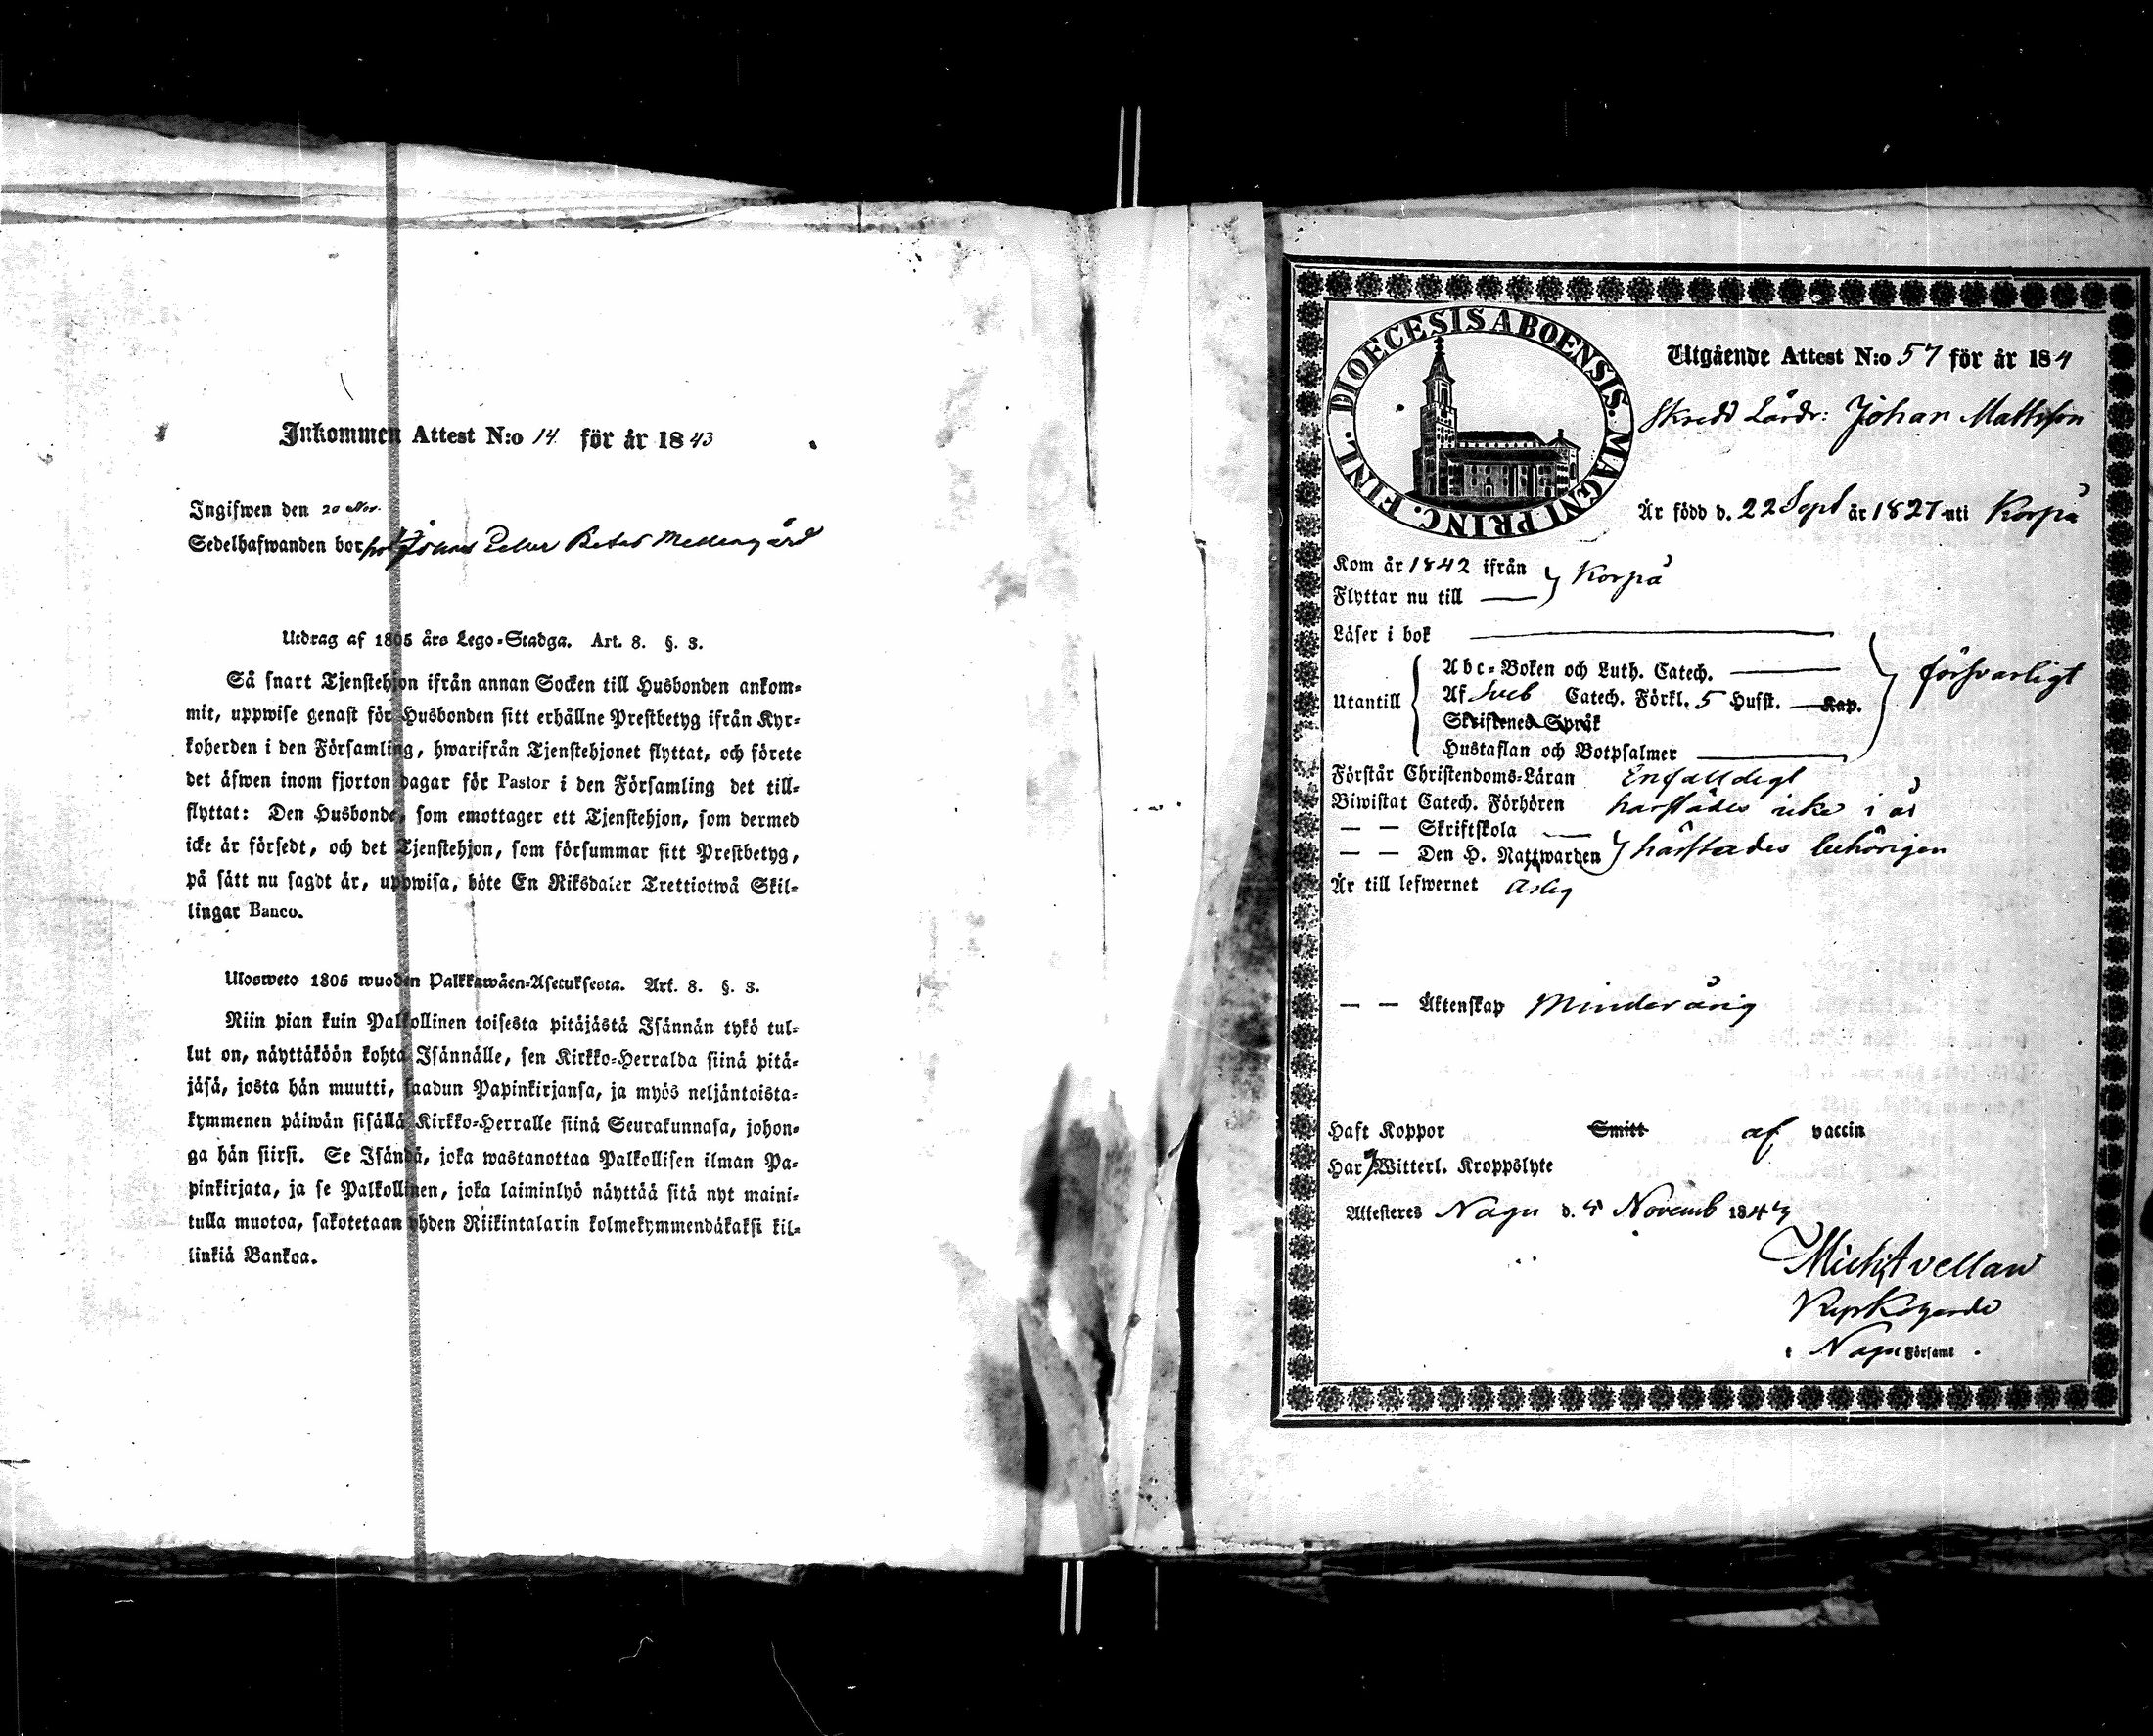 Inkommen Attest N:o 14. för år 1843
Ingifwen den 20 Nov.
Sedelhafwanden bor
Utdrag af 1805 års Lego-Stadga. Art. 8. §. 3.
Så snart Tjenstehjon ifrån annan Socken till Husbonden ankom-
mit, uppwise genast för Husbonden sitt erhållne Prestbetyg ifrån Kyr-
koherden i den Församling, hwarifrån Tjenstehjonet flyttat, och förete
det äfwen inom fjorton dagar för Pastor i den Församling det till-
flyttat: Den Husbonde, som emottager ett Tjenstehjon, som dermed
icke är försedt, och det Tjenstehjon, som försummar sitt Prestbetyg,
på sätt nu sagdt är, uppwisa, böte En Riksdaler Trettiotwå Skil-
lingar Banco.
Ulosweto 1805 wuoden Palkkawäen-Asetuksesta. Art. 8. §. 3.
Niin pian kuin Palkollinen toisesta pitäjästä Isännän tykö tul-
lut on, näyttäköön kohta Isännälle, sen Kirkko-Herralda siinä pitä-
jäsä, josta hän muutti, saadun Papinkirjansa, ja myös neljäntoista-
kymmenen päiwän sisällä Kirkko-Herralle siinä Seurakunnasa, johon-
ga hän siirsi. Se Isändä, joka wastanottaa Palkollisen ilman Pa-
pinkirjata, ja se Palkollinen, joka laiminlyö näyttää sitä nyt maini-
tulla muotoa, sakotetaan yhden Riikintalarin kolmekymmendäkaksi kil-
linkiä Bankoa.
DIOECESIS ABOENSIS. MAGNI PRINC. FINL.
Utgående Attest N:o 57 för år 184
Skredd Lärdr: Johan Mattsson
Är född d. 22 Sept år 1827 uti Korpå
Kom år 1842 ifrån
Flyttar nu till — Korpå
Läser i bok
Abc-Boken och Luth. Catech.
Utantill Af Sveb Catech. Förkl. 5 Husst. — Kap. försvarligt
Skriftenes Språk
Hustaflan och Botpsalmer
Förstår Christendoms-Läran Enfalldigt
Biwistat Catech. Förhören härstädes icke i år
— — Skriftskola —
— — Den H. Nattwarden härstädes behörigen
Är till lefwernet
— — Äktenskap Minderårig
Haft Koppor Smitt af vaccin
Har Witterl. Kroppslyte
Attesteres Nagu d. Novemb 184
Mich Avellan
Kyrkoherde
i Nagu Församl.